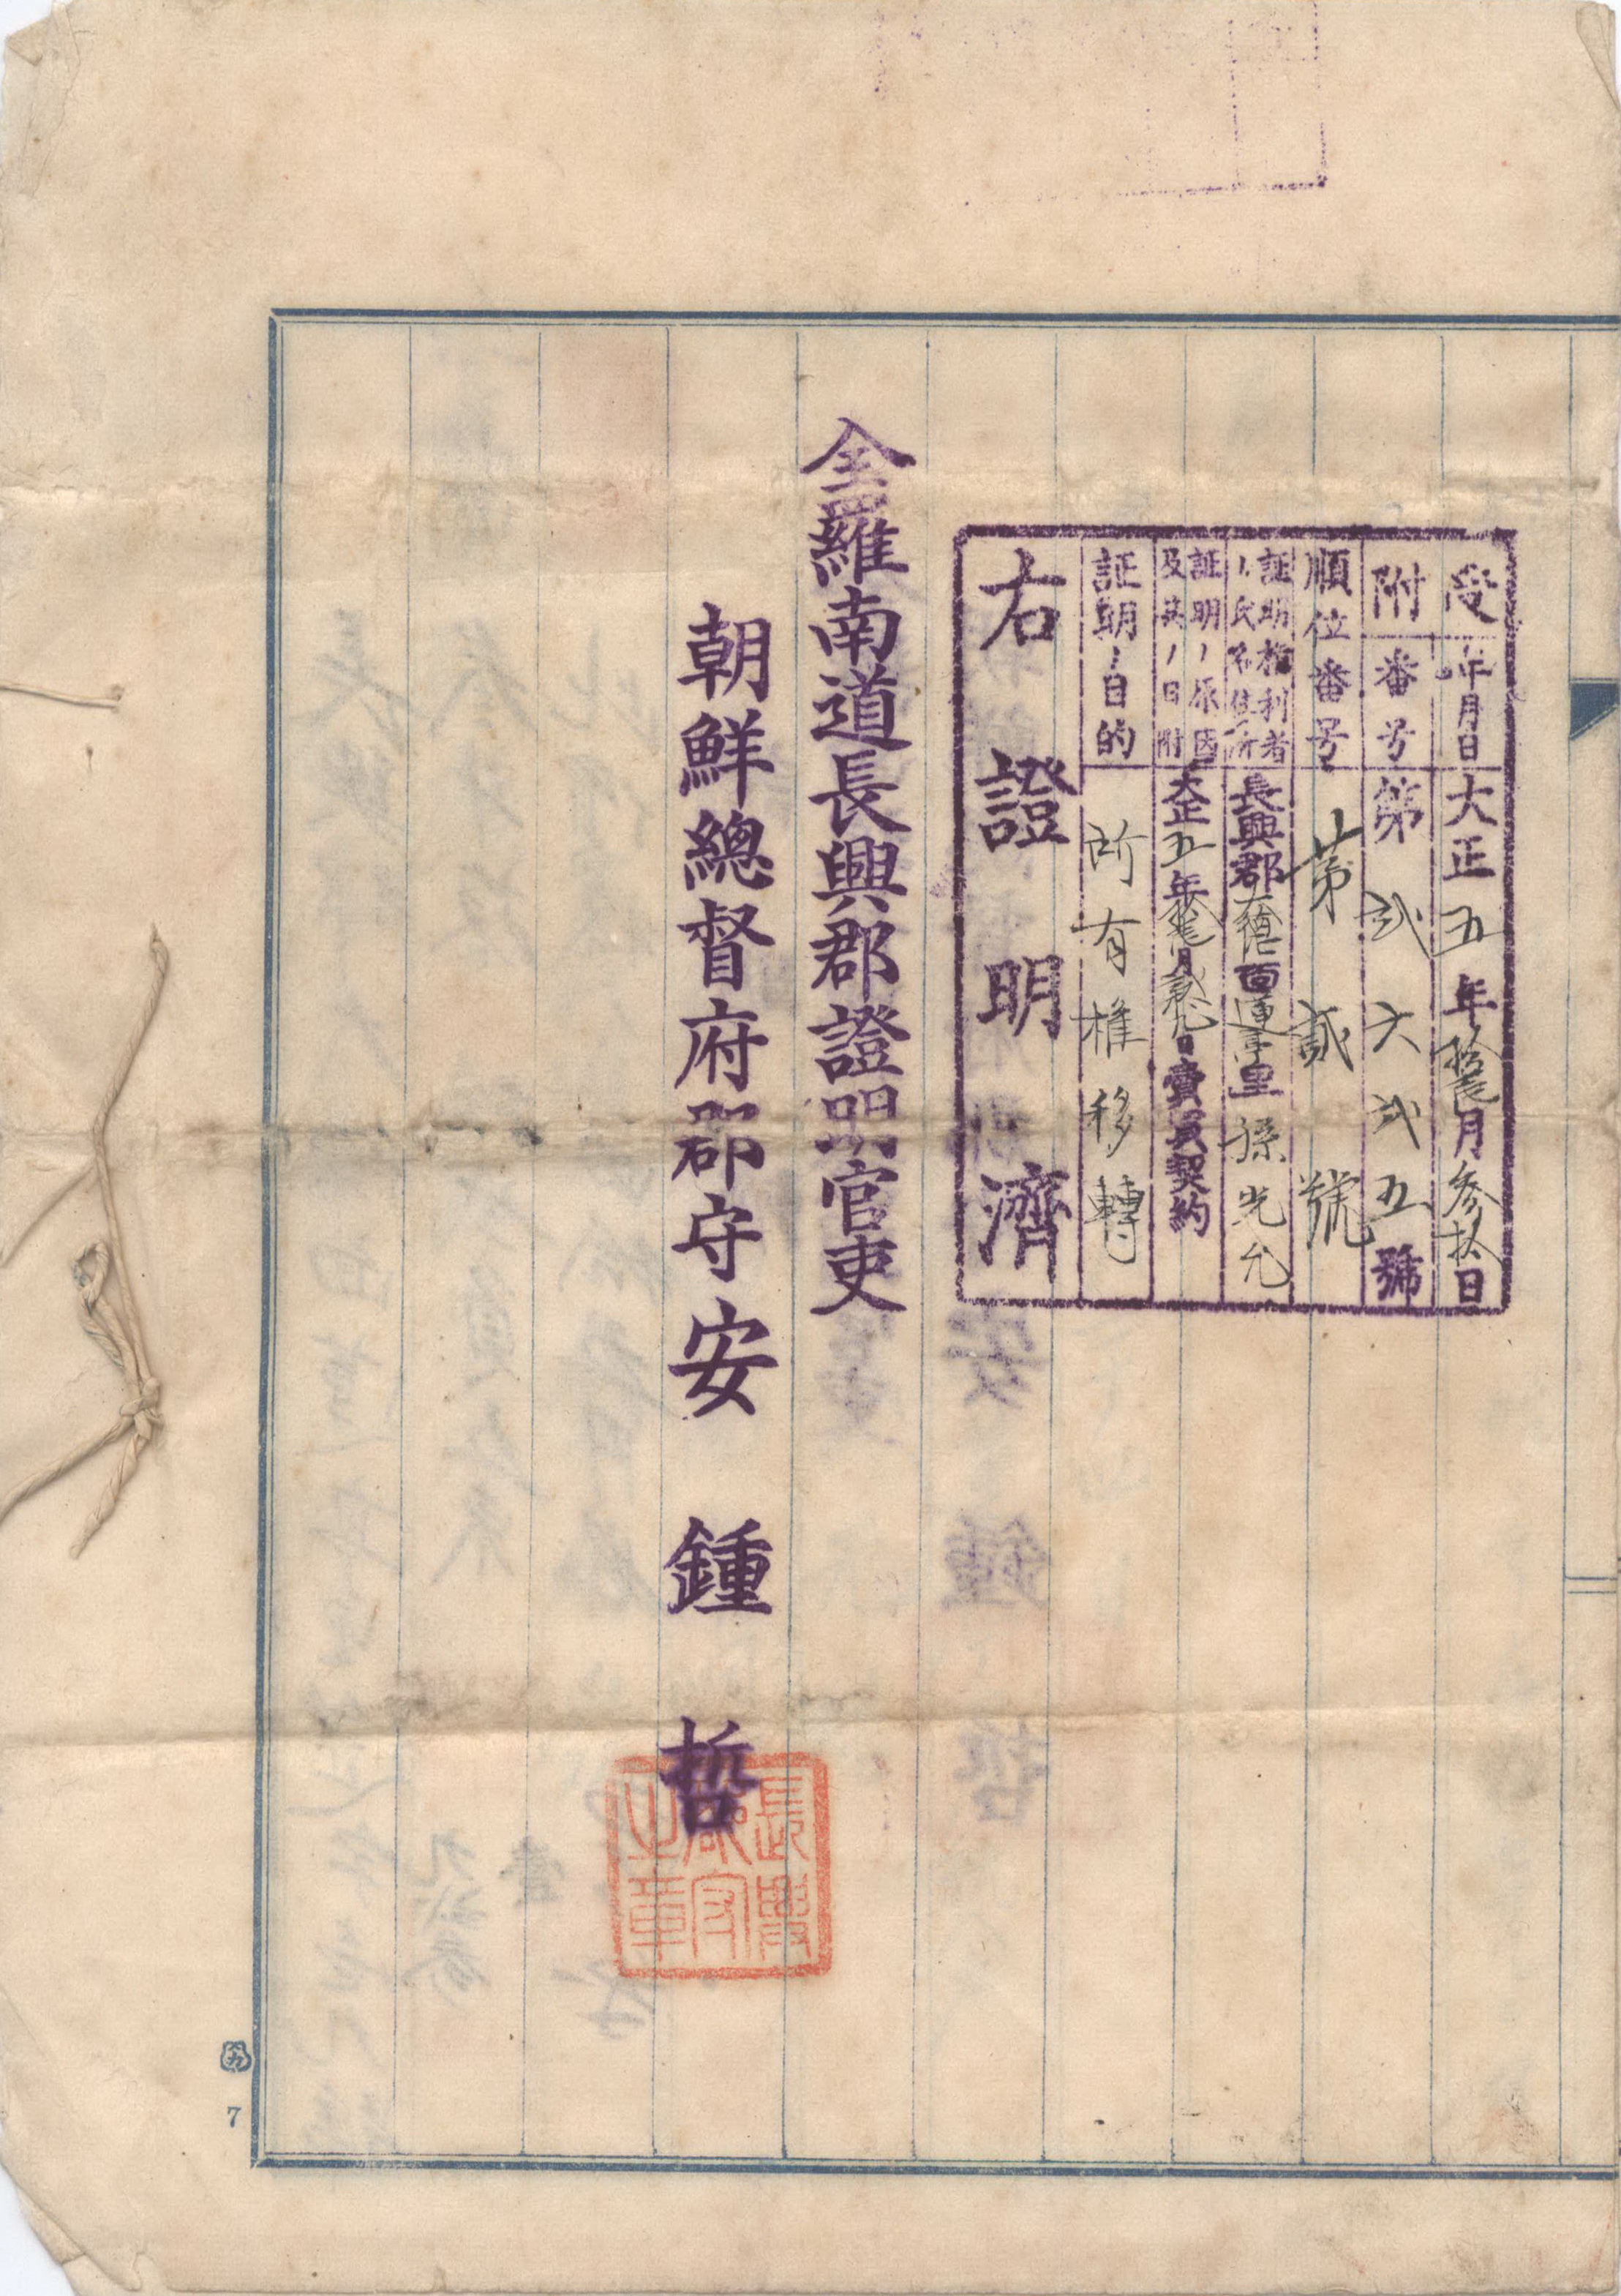 受附
年月日 大正五年拾壹月参拾日
番号 第弍六弍五號
順位番号 第貳號
証明權利者ノ氏名住所 長興郡面里 孫光允
証明ノ原因及其ノ日附 大正五年拾壹月日賣買契約
証明ノ目的 所有権移轉
右證明濟
全羅南道長興郡證明官吏
朝鮮總督府郡守安鍾哲
長興郡守之章
7